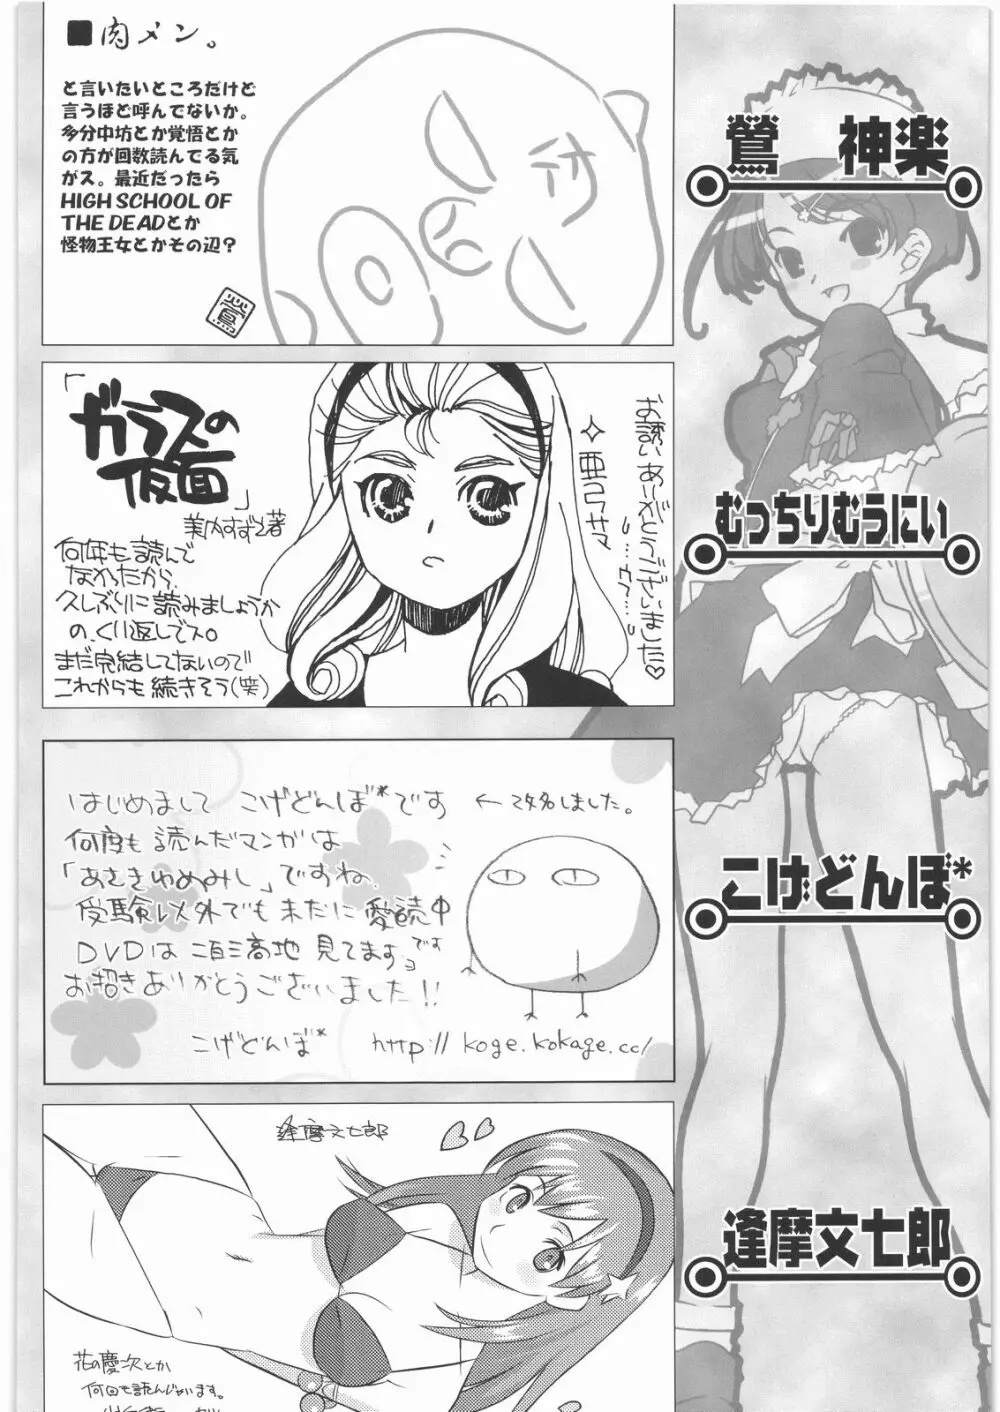 ■肉メン。
と言いたいところだけど
言うほど呼んでないか。
多分中坊とか覚悟とか
の方が回数読んでる気
がス。最近だったら
HIGH SCHOOL OF
THE DEADとか
怪物王女とかその辺?
鶯
鶯 神楽
「ガラスの
仮面」
美内すずえ著
何年も読んで
なかったから、
久しぶりに読みましょうか
の、くり返しでス。
まだ完結してないので
これからも続きそう(笑)
お誘いありがとうございました♡
✧亜弓サマ
むっちりむうにい
はじめまして こげどんぼ*です ←改名しました。
何度も読んだマンガは
「あさきゆめみし」ですね。
受験以外でも未だに愛読中です
DVDは二百三高地見てますョ
お招きありがとうございました!!
こげどんぼ* http://koge.kokage.cc/
こげどんぼ*
逢摩文七郎
花の慶次とか
何回も読んじゃいます。
逢摩文七郎